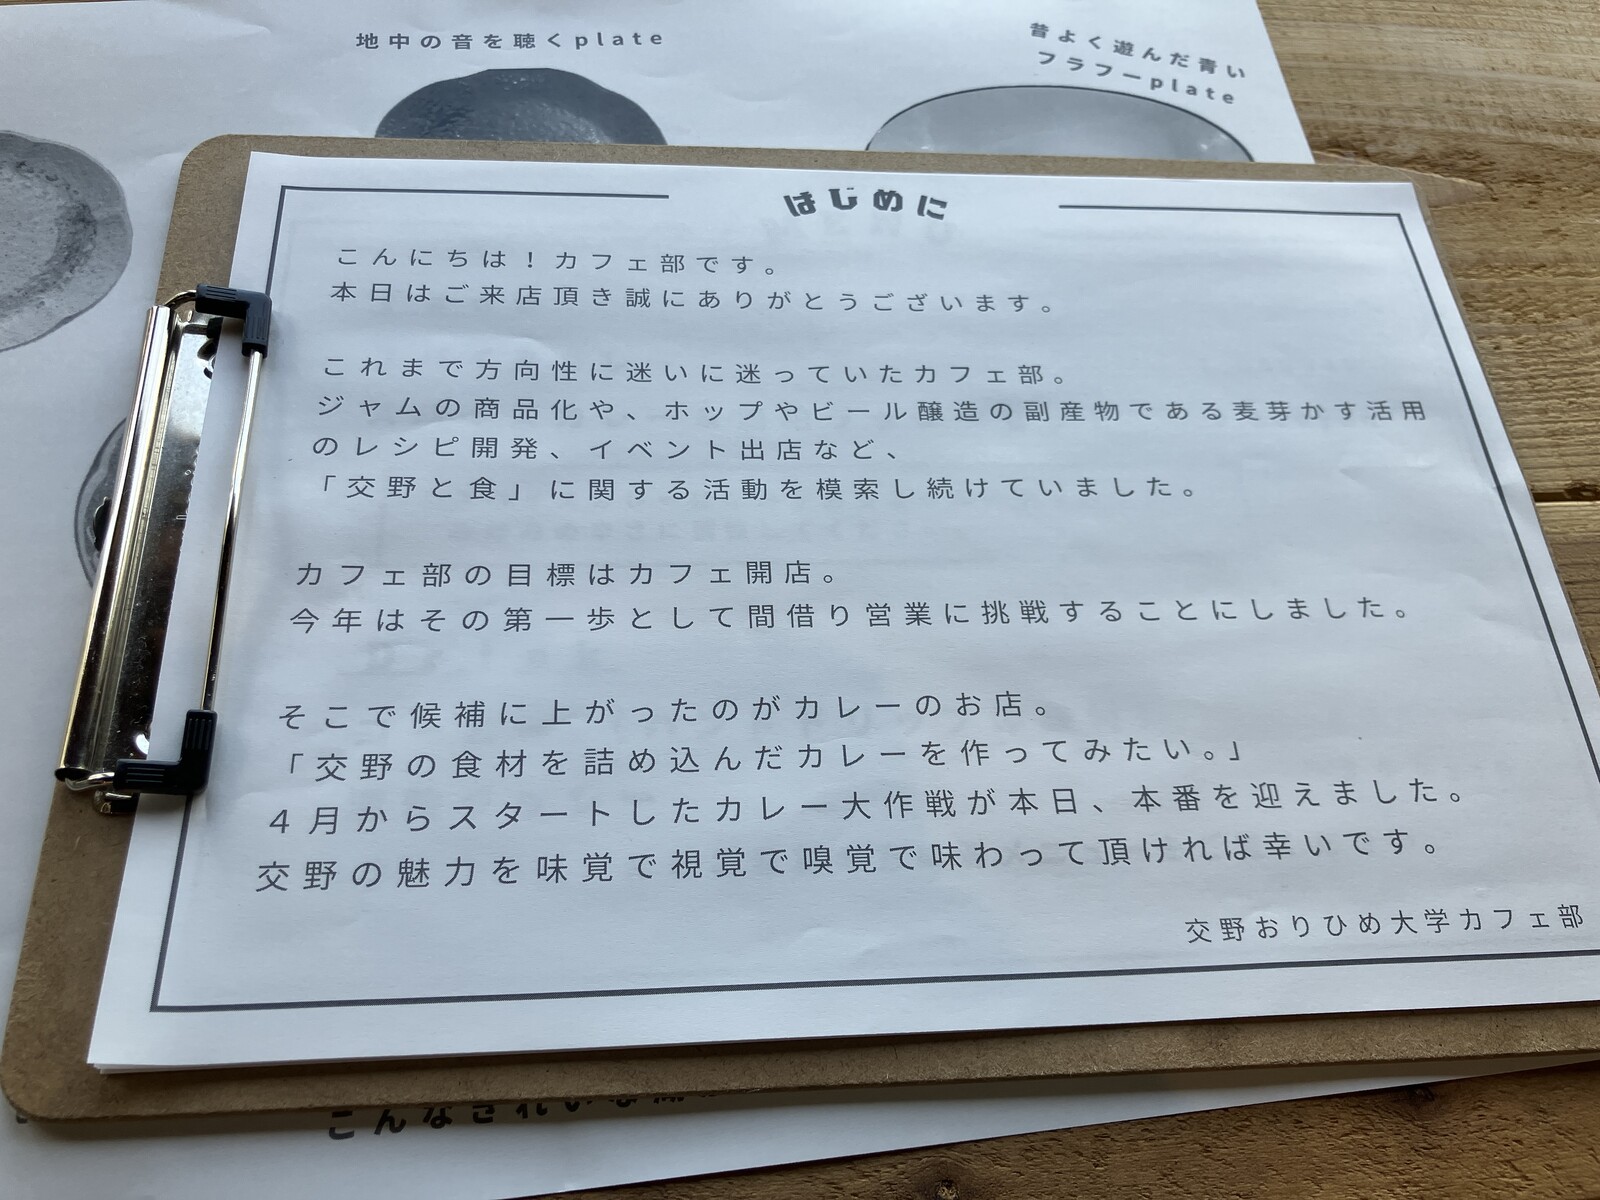 地中の音を聴くplate
昔よく遊んだ青い
フラフープplate
はじめに
こんにちは！カフェ部です。
本日はご来店頂き誠にありがとうございます。
これまで方向性に迷いに迷っていたカフェ部。
ジャムの商品化や、ホップやビール醸造の副産物である麦芽かす活用
のレシピ開発、イベント出店など、
「交野と食」に関する活動を模索し続けていました。
カフェ部の目標はカフェ開店。
今年はその第一歩として間借り営業に挑戦することにしました。
そこで候補に上がったのがカレーのお店。
「交野の食材を詰め込んだカレーを作ってみたい。」
４月からスタートしたカレー大作戦が本日、本番を迎えました。
交野の魅力を味覚で視覚で嗅覚で味わって頂ければ幸いです。
交野おりひめ大学カフェ部
こんなきれいな